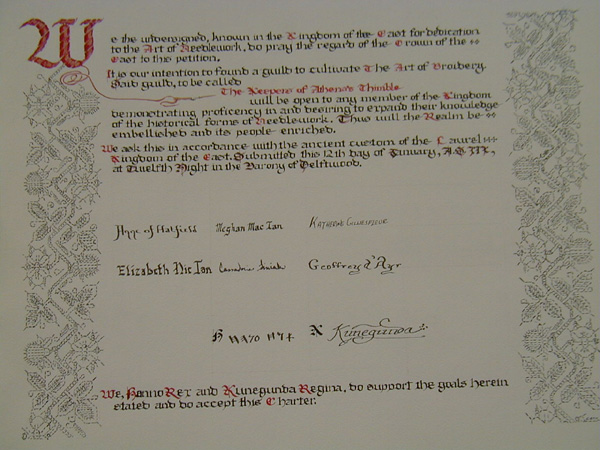 We the undersigned, known in the Kingdom of the East for dedication
to the Art of Needlework, do pray the regard of the Crown of the
East to this petition.
It is our intention to found a guild to cultivate The Art of Broidery.
Said guild, to be called
The Keepers of Athena's Thimble
will be open to any member of the Kingdom
demonstrating proficency in and desiring to expand their knowledge
of the historical forms of Needlework. Thus will the Realm be
embellished and its people enriched.
We ask this in accordance with the ancient custom of the Laurel
Kingdom of the East. Submitted this 12th day of January, A.S. XIX,
at Twelfth Night in the Barony of Delftwood.
of Hatfield Meghan Mac Ian Katherine
Elizabeth Nic Ian Geoffrey d'Ayr
X Kunegunda
We, Hanno Rex and Kunegunda Regina, do support the goals herein
stated and do accept this Charter.